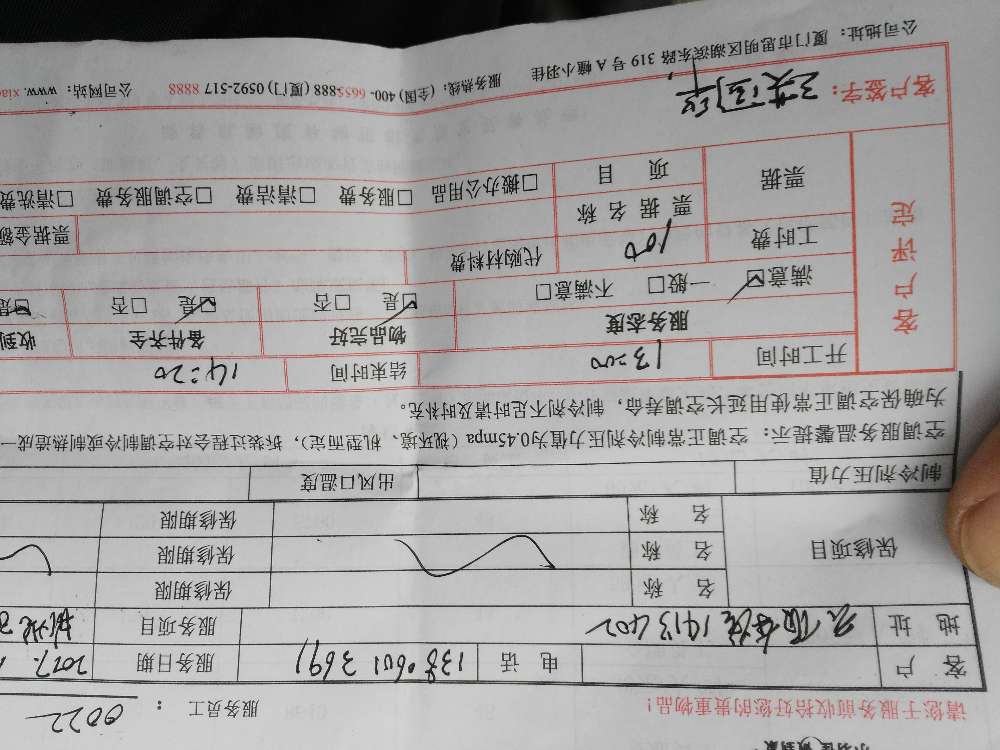 小羽佳
请您于服务前收拾好您的贵重物品！ 服务员工 ： 0022
客 户 电 话 138 0601 3691 服务日期
地 址 1913 402 服务项目
保修项目 名 称 保修期限
名 称 保修期限
名 称 保修期限
制冷剂压力值 出风口温度
空调服务温馨提示：空调正常制冷剂压力值为0.45mpa（视环境、机型而定），拆装过程会对空调制冷或制热造成一
为确保空调正常使用延长空调寿命，制冷剂不足时请及时补充。
客户评定 开工时间 13:00 结束时间 14:20
服务态度 物品完好 备件齐全 收到
☑满意 一般□ 不满意□ ☑是 □否 ☑是 □否 ☑是
工时费 100 代购材料费
票据 票 据 名 称 票据金额
项 目 □搬办公用品 □服务费 □清洁费 □空调服务费 □清洗费
客户签字：
公司地址：厦门市思明区湖滨东路 319 号 A 幢小羽佳 服务热线：(全国) 400-6655888 (厦门) 0592-517 8888 公司网站：www. xiao